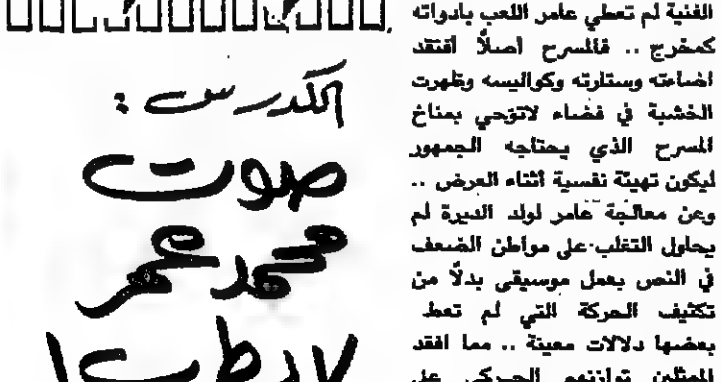 الفنية لم تعطي عامر اللعب بادواته
كمخرج .. فالمسرح أصلًا أفتقد
اضاءته وستارته وكواليسه وظهرت
الخشبة في فضاء لاتوحي بمناخ
المسرح الذي يحتاجه الجمهور
ليكون تهيئة نفسية أثناء العرض ..
وعن معالجة عامر لولد الديرة لم
يحاول التغلب على مواطن الضعف
في النص بعمل موسيقى بدلًا من
تكثيف الحركة التي لم تعط
بعضها دلالات معينة .. مما افقد
الممثلين توازنهم الحركي على
الكدرس :
صوت
محمد عمر